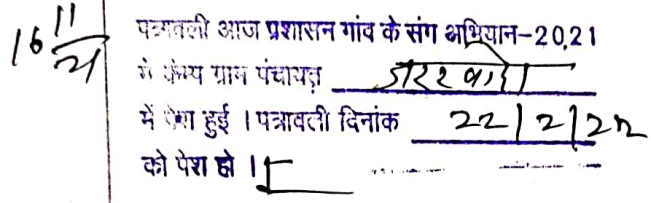 16 11/21
पत्रावली आज प्रशासन गांव के संग अभियान-2021
में कैम्प ग्राम पंचायत
में पेश हुई । पत्रावली दिनांक 22/2/22
को पेश हो ।